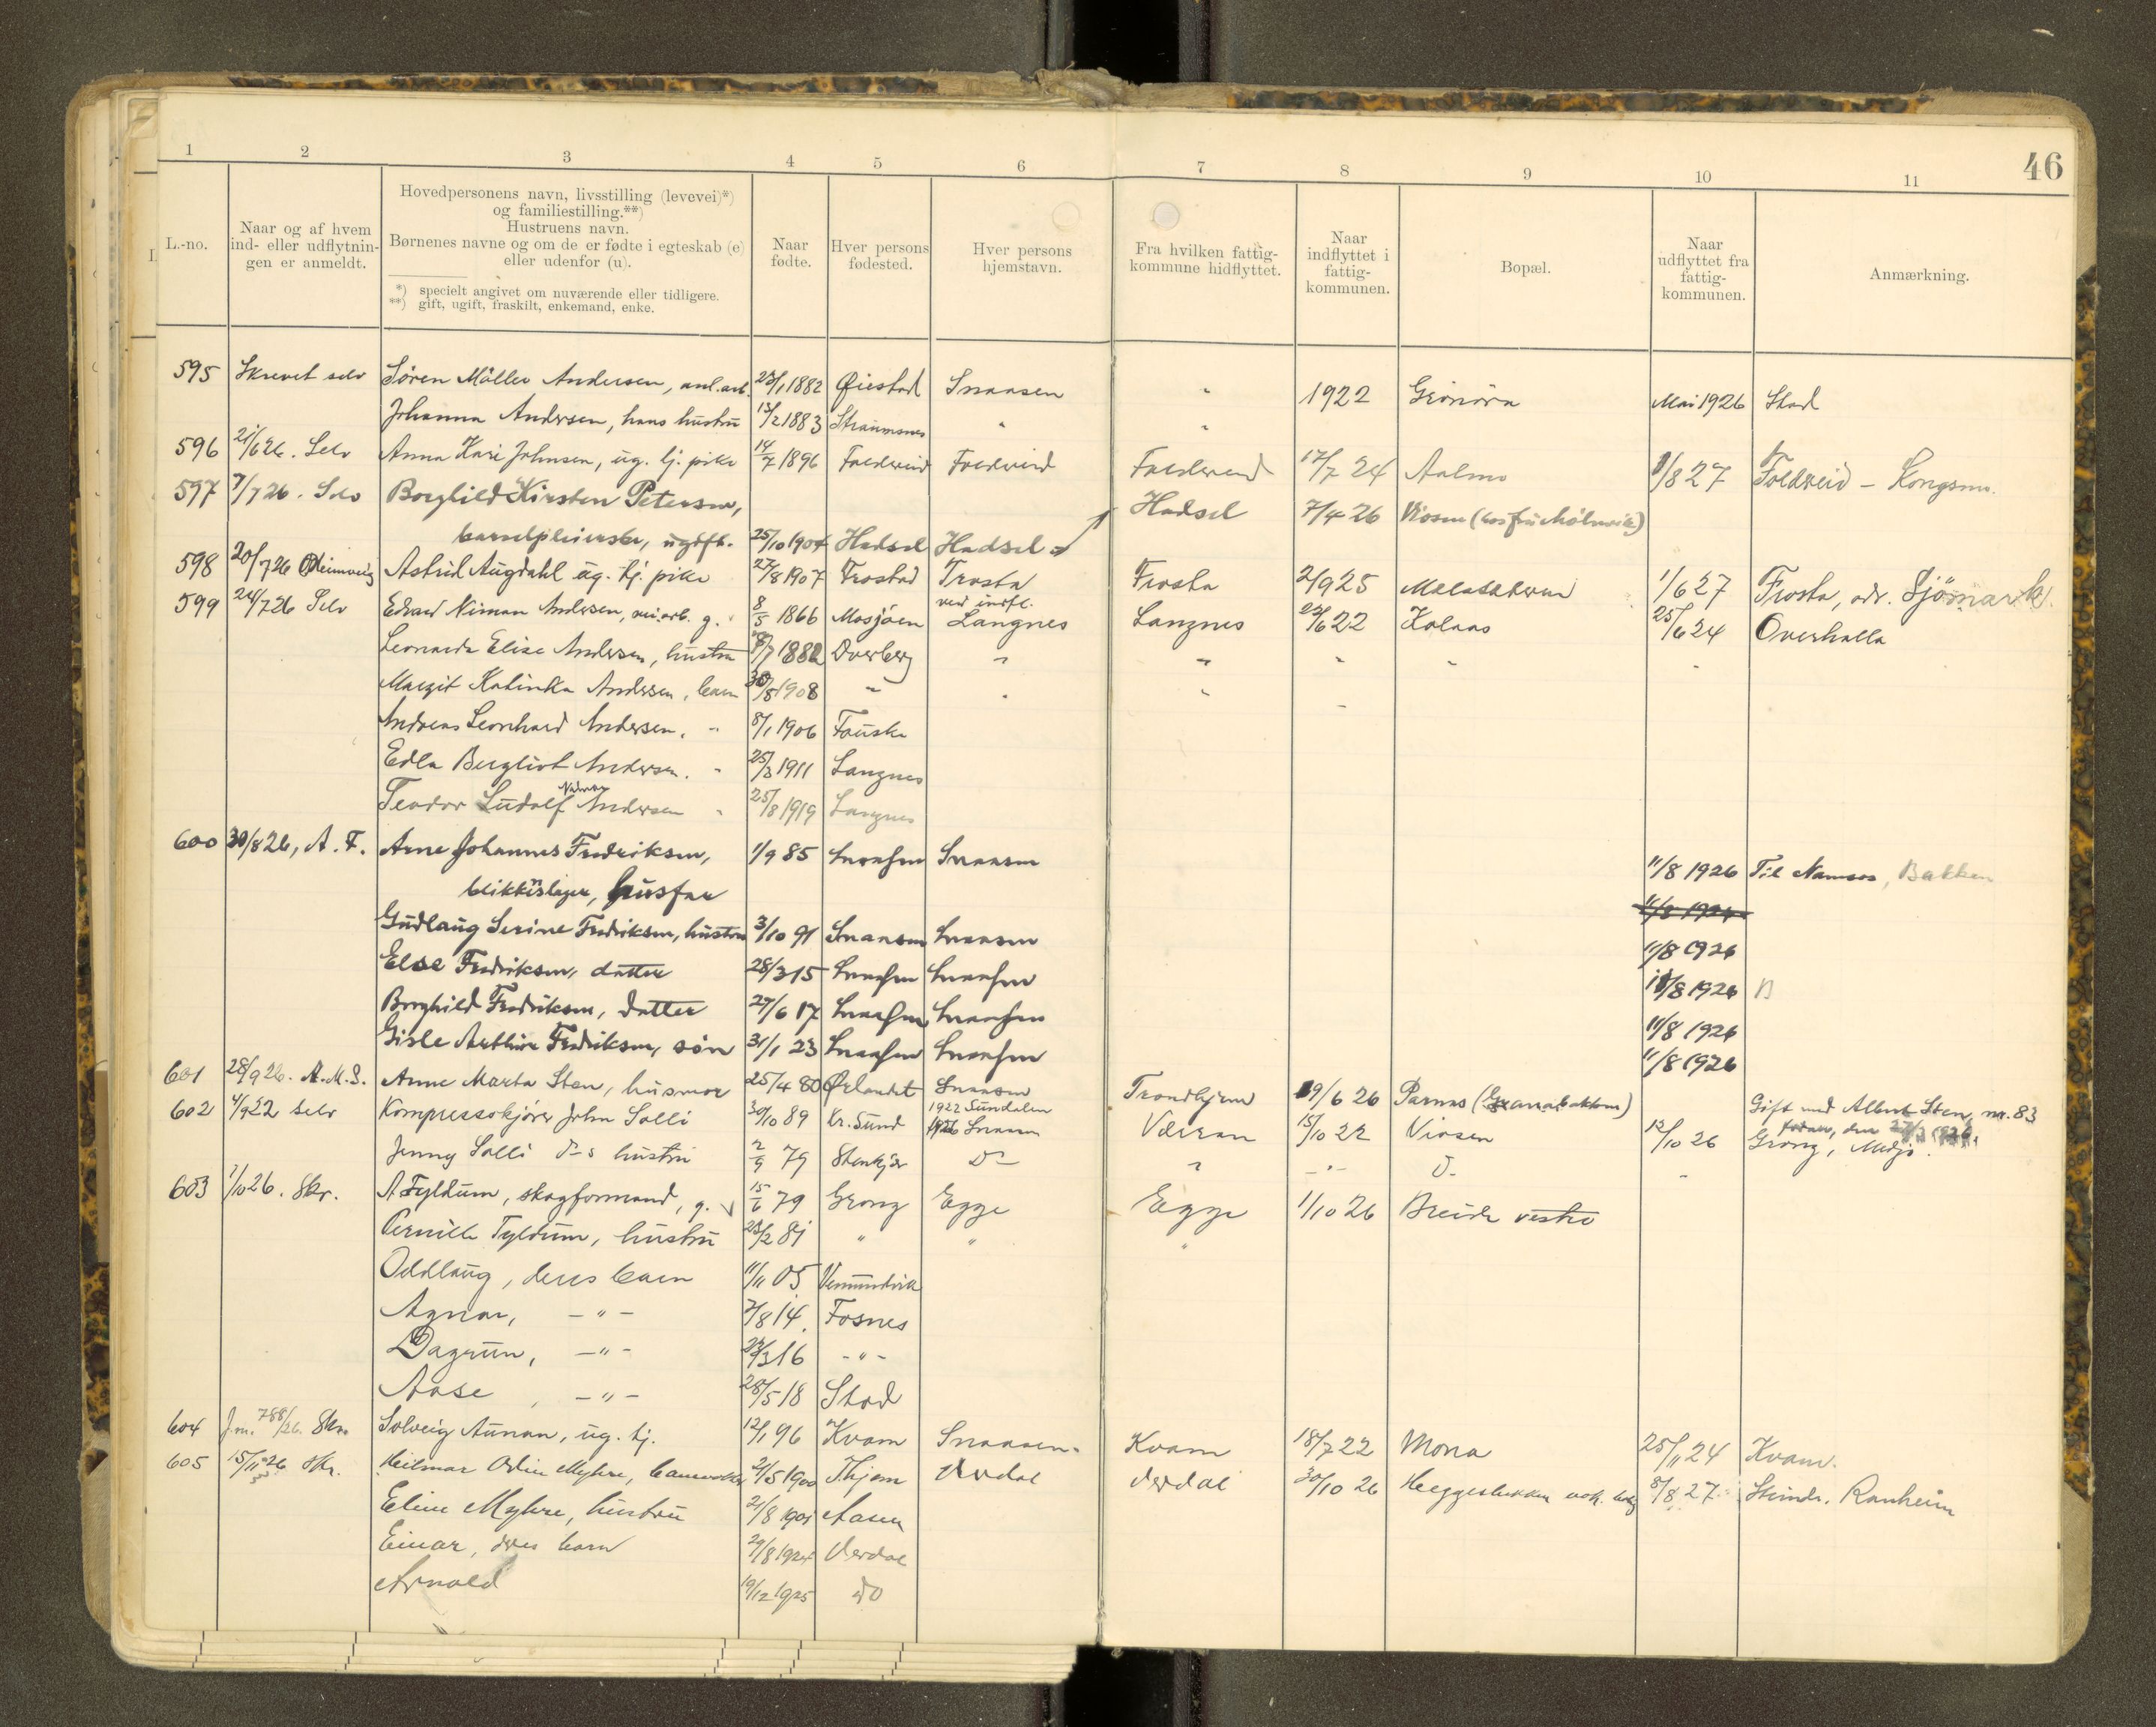 46
1 2 3 4 5 6 7 8 9 10 11
L.-no.
Naar og af hvem
ind- eller udflytnin-
gen er anmeldt.
Hovedpersonens navn, livsstilling (levevei)*)
og familiestilling.**)
Hustruens navn.
Børnenes navne og om de er fødte i egteskab (e)
eller udenfor (u).
*) specielt angivet om nuværende eller tidligere.
**) gift, ugift, fraskilt, enkemand, enke.
Naar
fødte.
Hver persons
fødested.
Hver persons
hjemstavn.
Fra hvilken fattig-
kommune hidflyttet.
Naar
indflyttet i
fattig-
kommunen.
Bopæl.
Naar
udflyttet fra
fattig-
kommunen.
Anmærkning.
595 Skrevet selv Søren Möller Andersen, anl.arb. 23/1 1882 Øiestad Snaasen " 1922 Mai 1926 Stod
Johanna Andersen, hans hustru 13/2 1883 Straumsnes " "
596 21/6 26. Selv Anna Kari Johnsen, ug. tj. pike 14/7 1896 Foldereid Foldereid Foldereid 17/7 24 Aalmo 1/8 27 Foldreid - Kongsmo.
597 7/7 26. Selv Borghild Kirsten Petersen, Hadsel 7/4 26
barselpleierske, ugift. 25/10 1904 Hadsel Hadsel
598 20/7 26 Astrid Augdahl ug. tj. pike 27/8 1907 Frostad Frosta Frosta 2/9 25 1/6 27 Frosta, adr. Sjömark.
599 24/7 26 Selv Edvard Niman Andersen, vei.arb. g. 8/5 1866 Mosjöen ved indfl. Langnes Langnes 22/6 22 Kolaas 25/6 24 Overhalla
Leonarda Elise Andersen, hustru 8/7 1882 Dverberg " " " " "
Margit Katinka Andersen, barn 30/8 1908 " " " "
Andreas Leonhard Andersen. " 8/1 1906 Fauske
Edla Bergliot Andersen. " 25/3 1911 Langnes
Teodor Ludolf Andersen " 25/8 1919 Langnes
600 30/8 26, A. F. Arne Johannes Fredriksen, 1/9 85 Snaasen Snaasen 11/8 1926 Til Namsos, Bakken
blikkenslager, husfar
Gudlaug Serine Fredriksen, hustru 3/10 91 Snaasen Snaasen 11/8 1926
Else Fredriksen, datter 28/3 15 Snaasen Snaasen 11/8 1926 B
Borghild Fredriksen, datter 27/6 17 Snaasen Snaasen 11/8 1926
Gisle Arthur Fredriksen, søn 31/1 23 Snaasen Snaasen 11/8 1926
601 28/9 26. A.M.S. Anne Marta Sten, husmor 25/4 80 Ørlandet Snaasen Trondhjem 19/6 26 Parnas Gift med Albert Sten, nr. 83
602 4/9 22 selv Kompressokjører John Solli 30/10 89 Kr. Sund 1922 Sundalen 1926 Snaasen Værran 15/10 22 Viosen 12/10 26 Grong,
Jenny Solli hustru 2/9 79 Stenkjær Do " - " -
603 1/10 26. Skr. A Tyldum, skogformand, g. 15/6 79 Grong Egge Egge 1/10 26 Breide vestre
Pernille Tyldum, hustru 23/2 81 " " "
Oddlaug, deres barn 11/11 05 Vemundvik
Agnar, - " - 7/8 14. Fosnes
Dagrun, - " - 3 16 - " -
Aase, - " - 28/5 18 Stod
604 J.nr. 788/26. Skr. Solveig Aunan, ug. tj. 12/1 96 Kvam Snaasen. Kvam 18/7 22 Mona 25/11 24 Kvam.
605 15/11 26 Skr. Hilmar Odin Myhre, 21/5 1900 Thjem Verdal Verdal 30/10 26 8/8 27. Strinda. Ranheim
Eline Myhre, hustru 21/8 1901 Aasen
Einar, deres barn 29/8 1924 Verdal
Arnold 19/12 1925 do